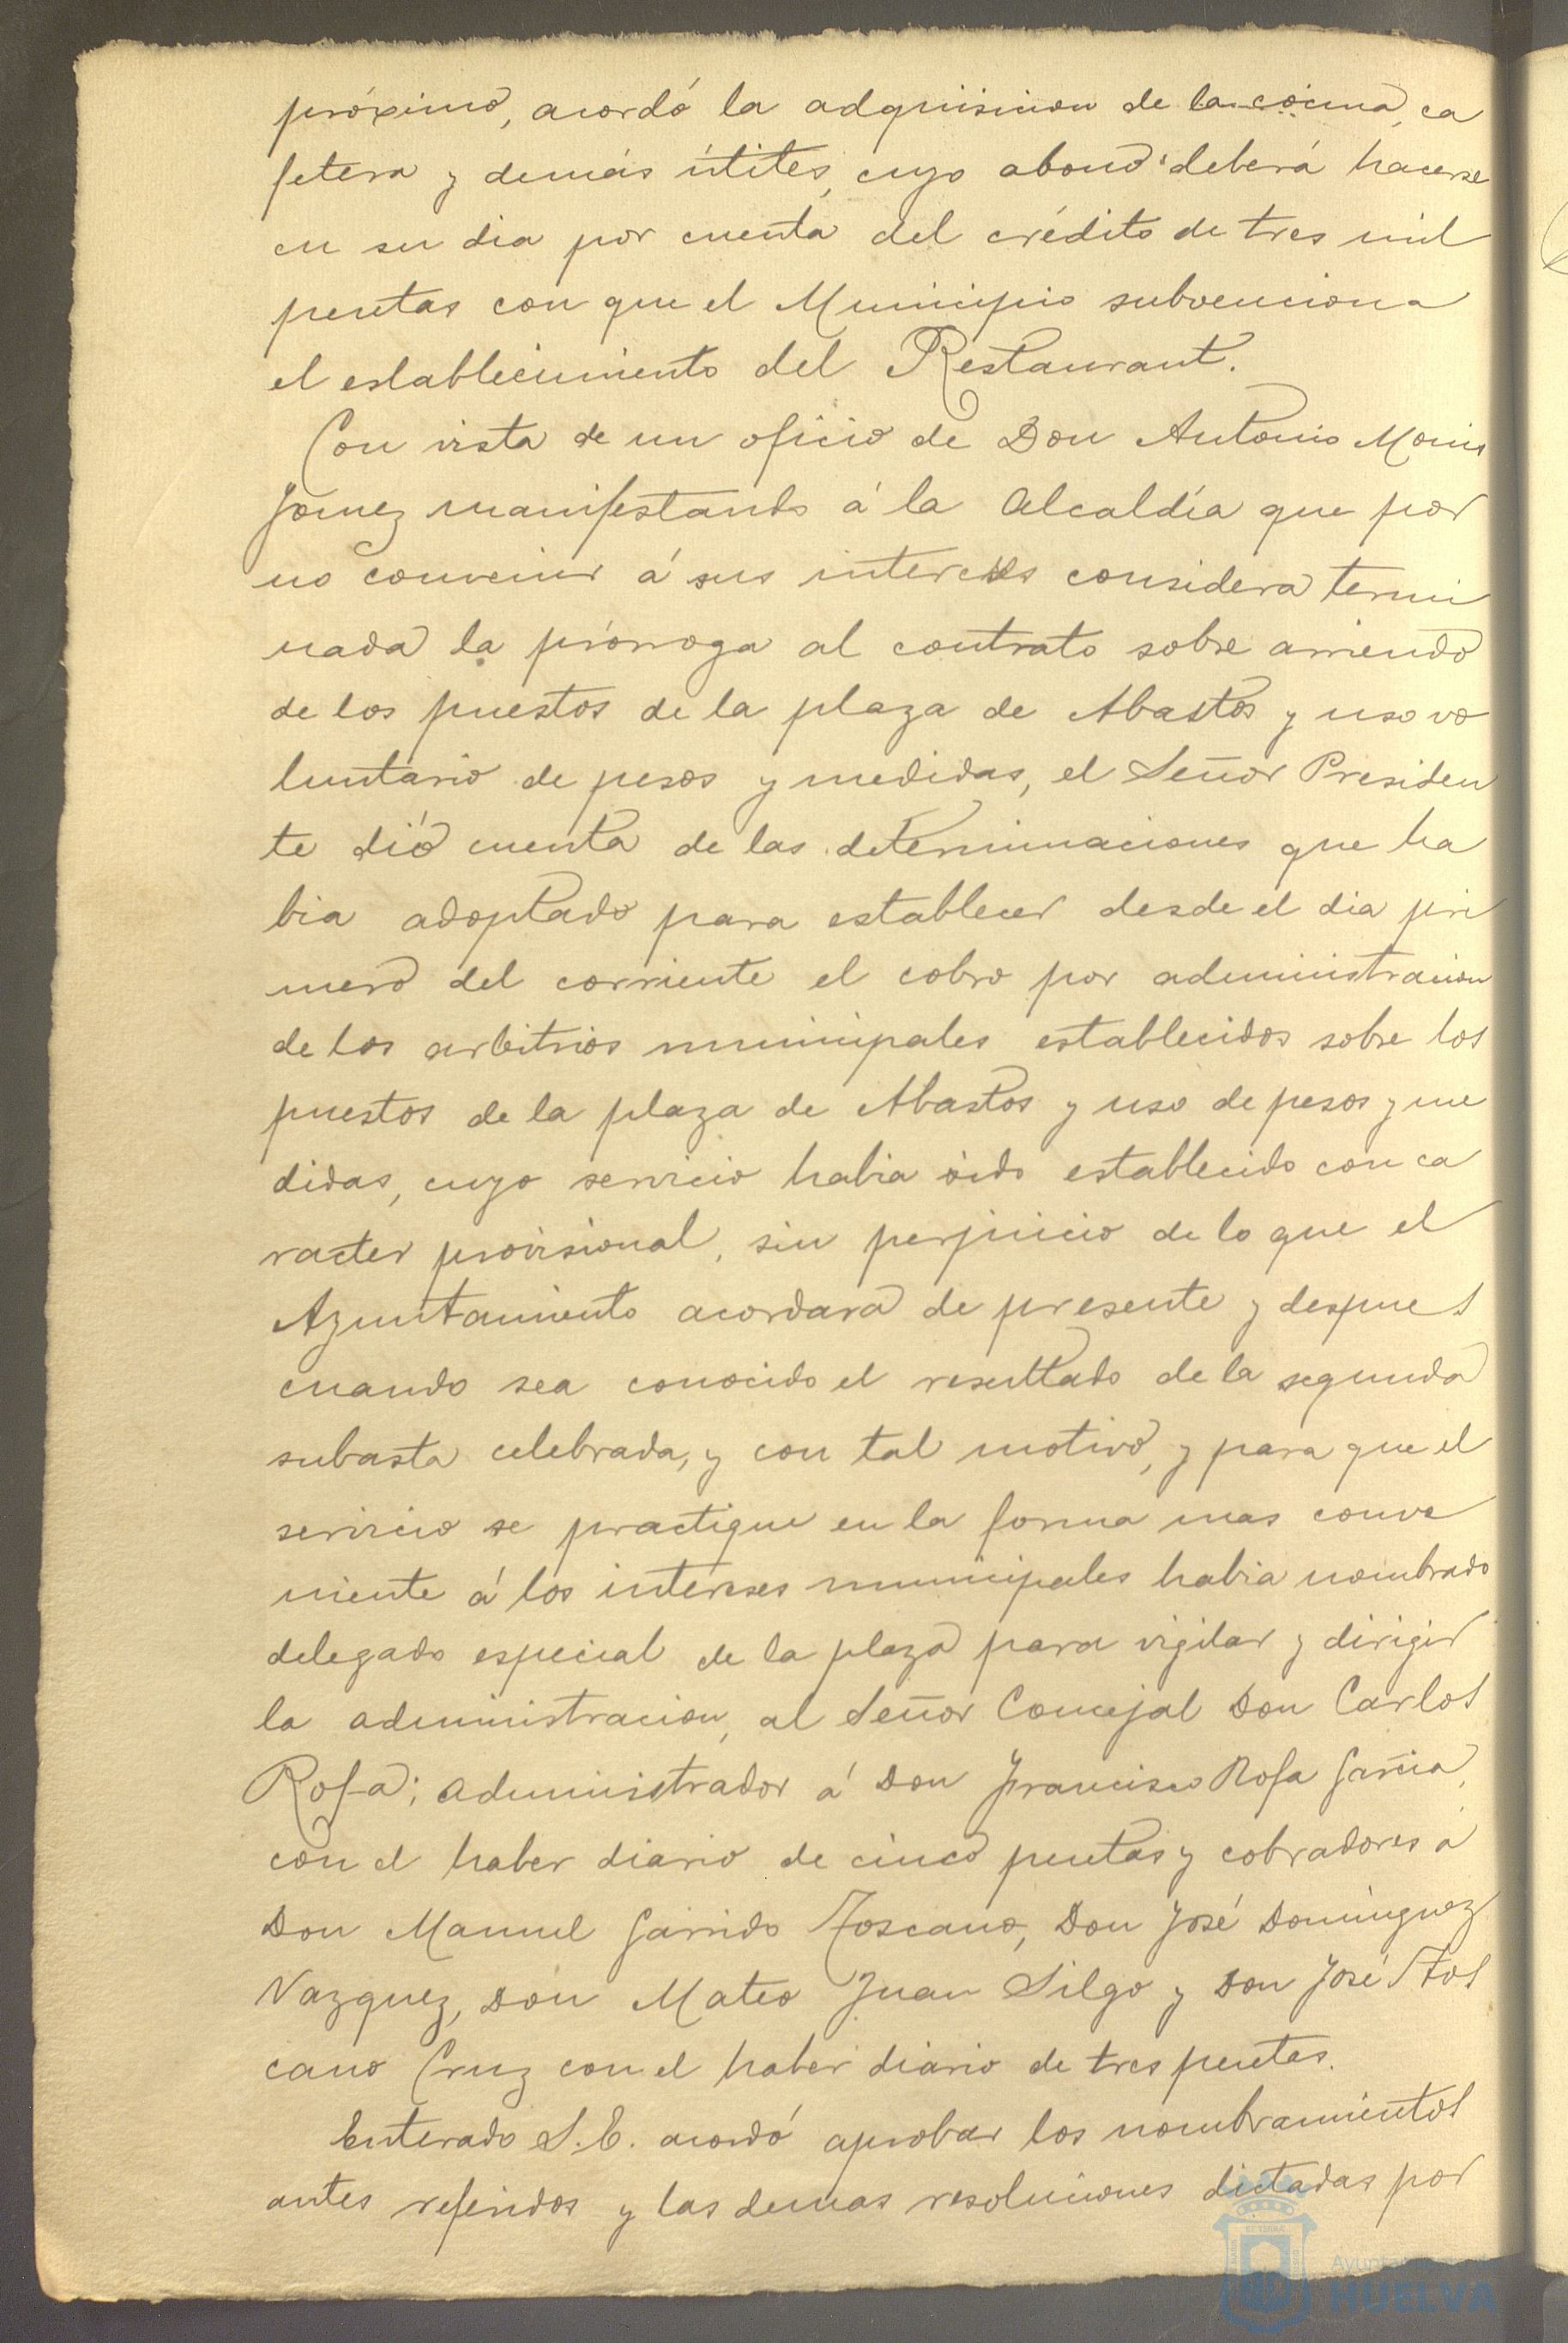 próximo, acordó la adquisicion de la cocina, ca
fetera y demás útites, cuyo abono deberá hacerse
en su dia por cuenta del crédito de tres mil
pesetas con que el Municipio subvenciona
el establecimiento del Restaurant.
Con vista de un oficio de Don Antonio Monis
Gomez manifestando á la Alcaldía que por
no convenir á sus intereses considera termi
nada la prórroga al contrato sobre arriendo
de los puestos de la plaza de Abastos y uso vo
luntario de pesos y medidas, el Señor Presiden
te dió cuenta de las determinaciones que ha
bia adoptado para establecer desde el dia pri
mero del corriente el cobro por administracion
de los arbitrios municipales establecidos sobre los
puestos de la plaza de Abastos y uso de pesos y me
didas, cuyo servicio habia sido establecido con ca
racter provisional, sin perjuicio de lo que el
Ayuntamiento acordara de presente y despues
cuando sea conocido el resultado de la segunda
subasta celebrada, y con tal motivo, y para que el
servicio se practique en la forma mas conve
niente á los intereses municipales habia nombrado
delegado especial de la plaza para vigilar y dirigir
la administracion, al Señor Concejal Don Carlos
Rofa; administrador á Don Francisco Rofa Garcia,
con el haber diario de cinco pesetas y cobradores á
Don Manuel Garrido Toscano, Don José Dominguez
Vazquez, Don Mateo Juan Silgo y Don José Tos
cano Cruz con el haber diario de tres pesetas.
Enterado S.E. acordó aprobar los nombramientos
antes referidos y las demas resoluciones dictadas por
Ayuntamiento de
HUELVA